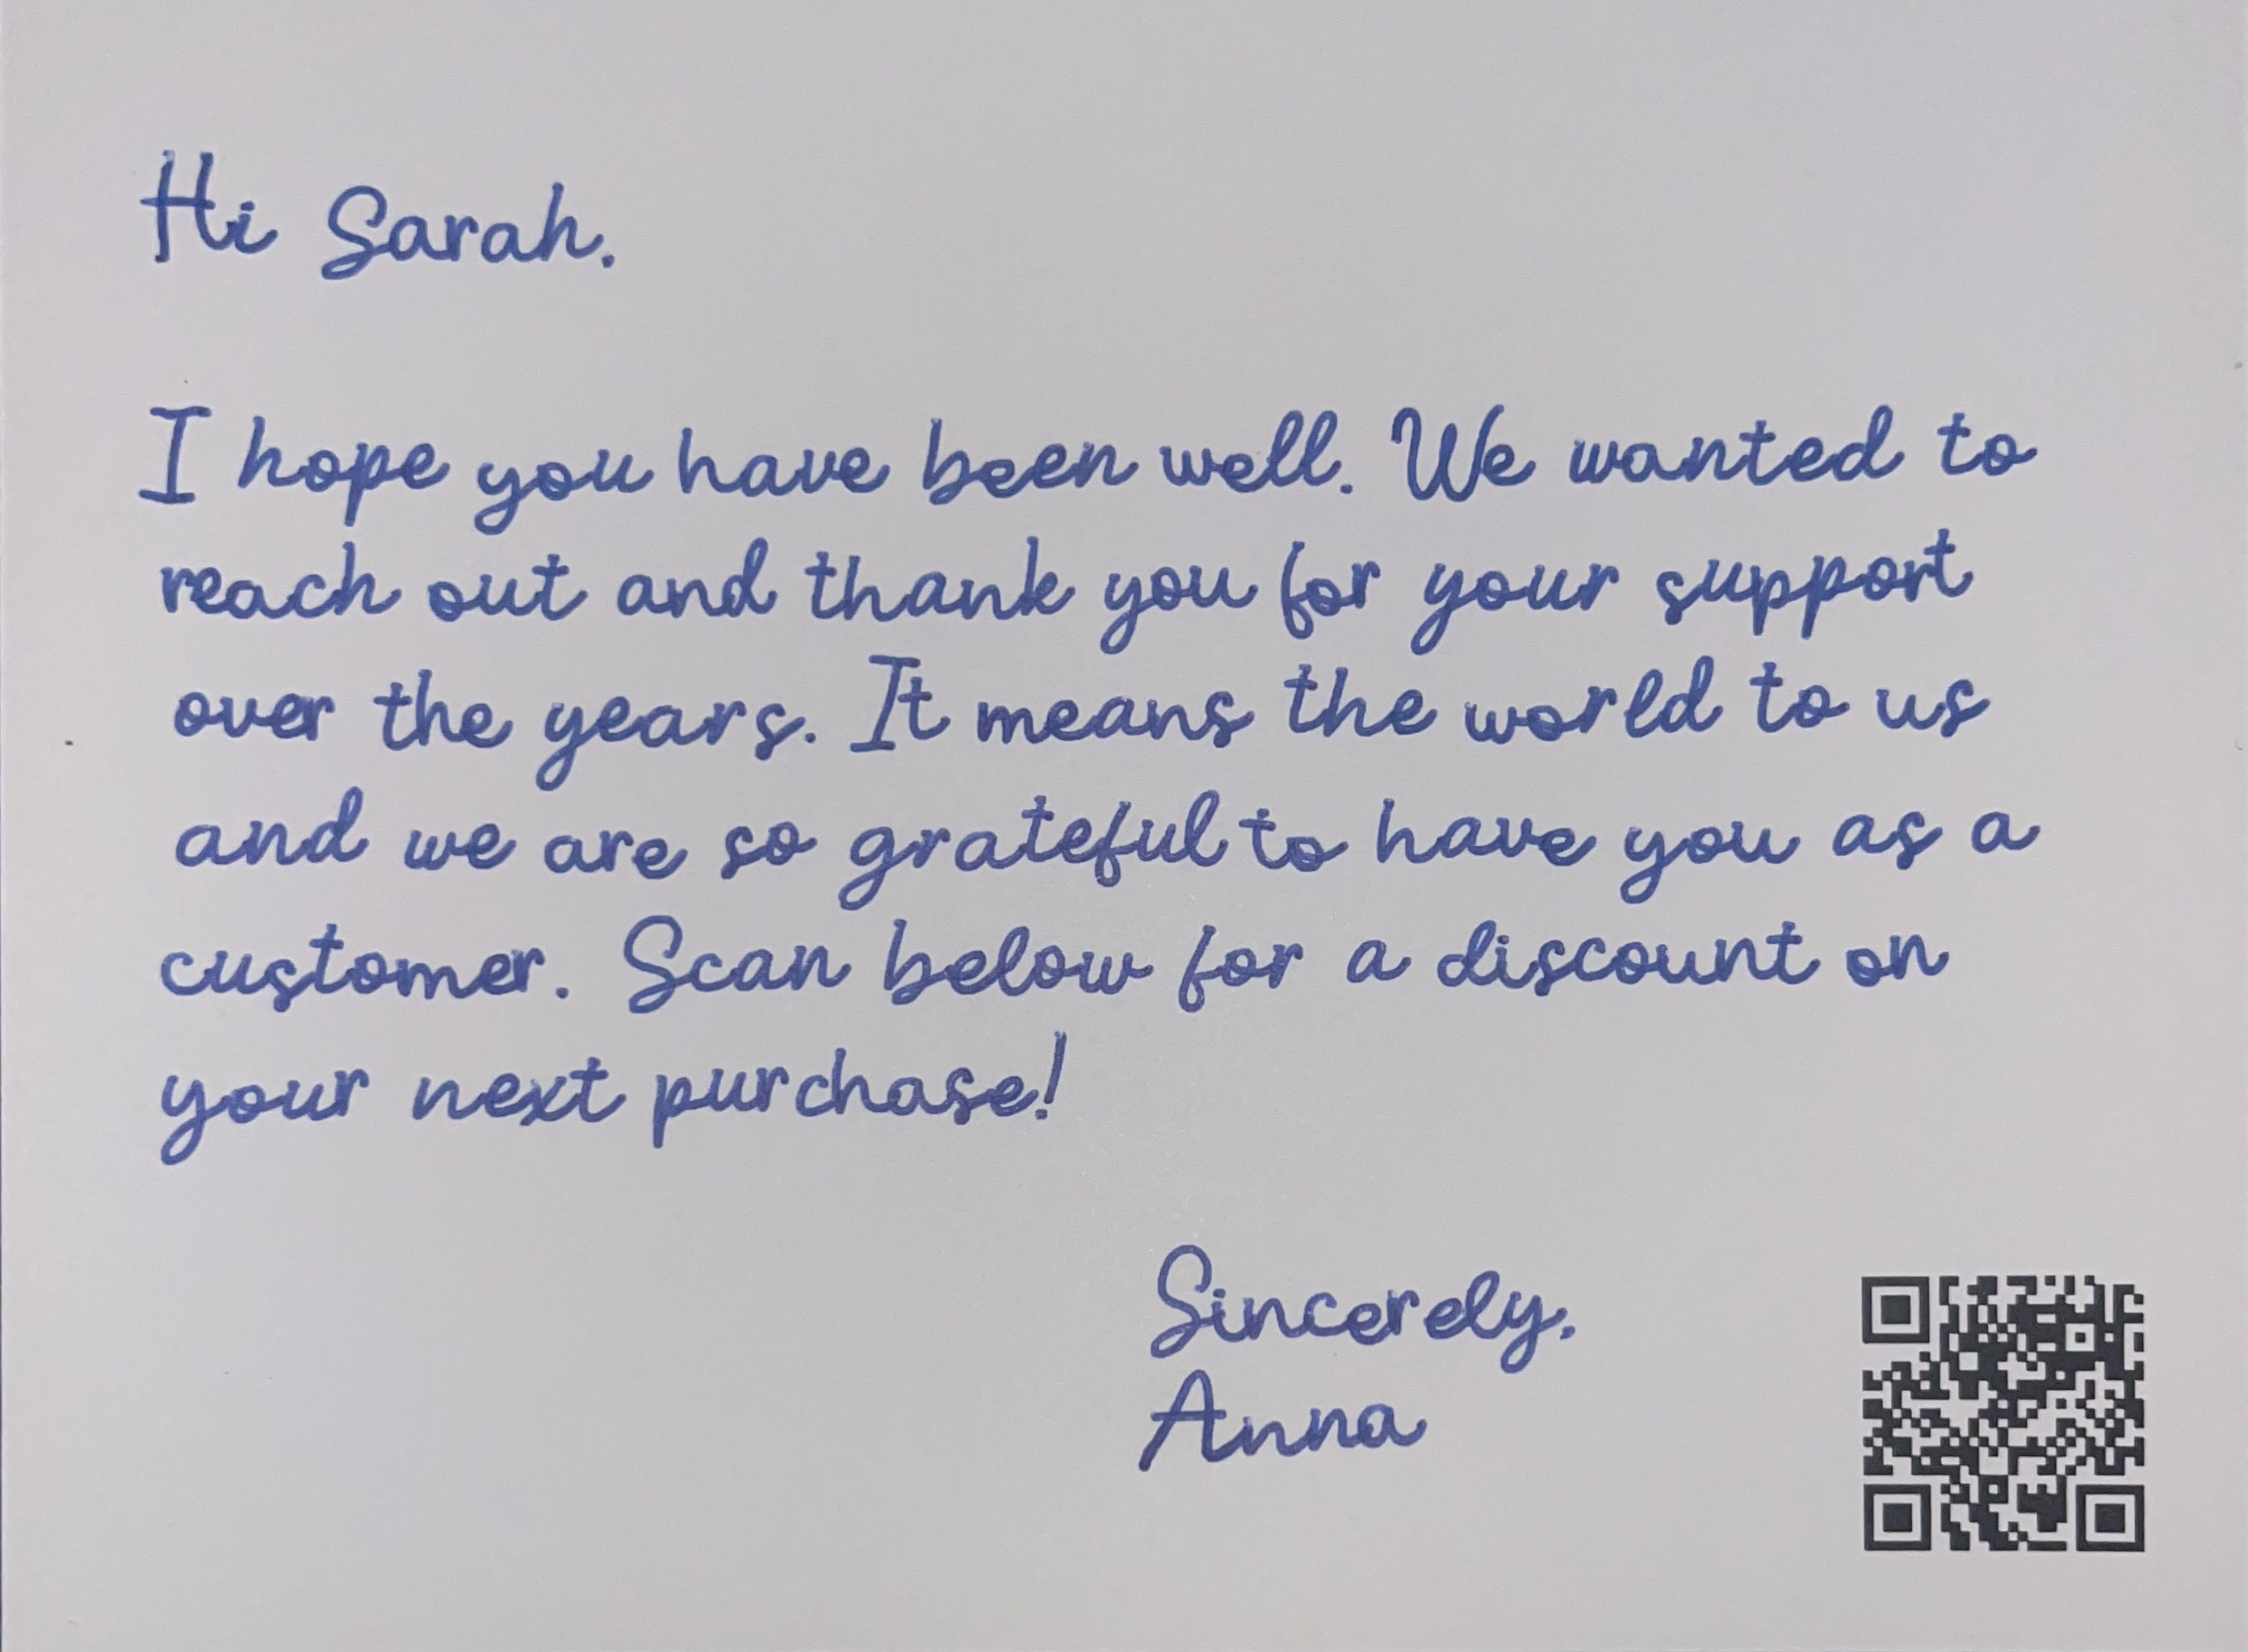 Hi Sarah,
I hope you have been well. We wanted to
reach out and thank you for your support
over the years. It means the world to us
and we are so grateful to have you as a
customer. Scan below for a discount on
your next purchase!
Sincerely,
Anna